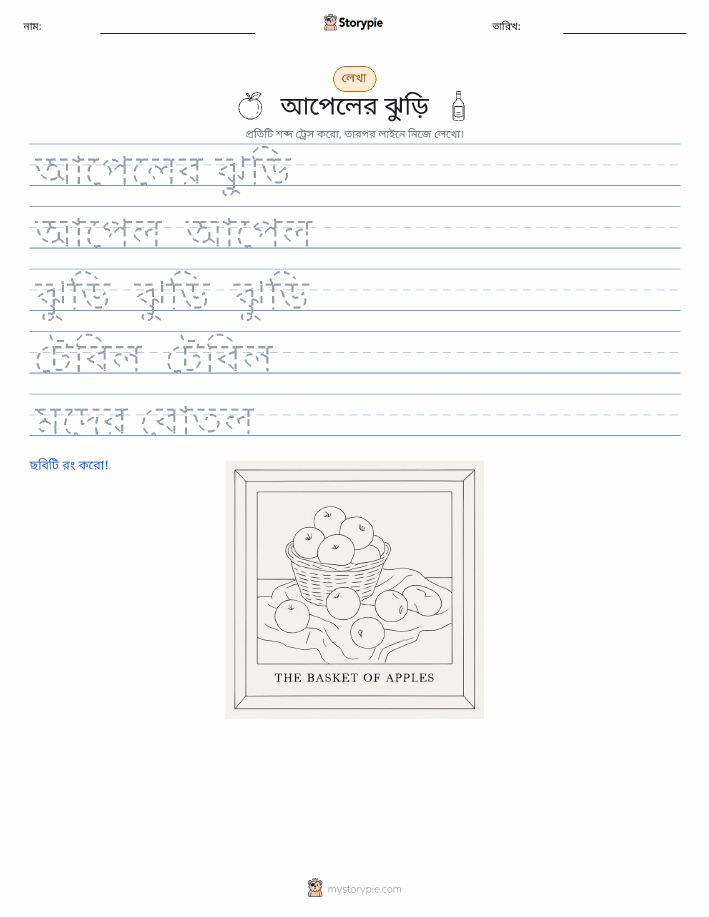 নাম:
Storypie
তারিখ:
লেখা
আপেলের ঝুড়ি
প্রতিটি শব্দ ট্রেস করো, তারপর লাইনে নিজে লেখো।
আপেলের ঝুড়ি
আপেল আপেল
ঝুড়ি ঝুড়ি ঝুড়ি
টেবিল টেবিল
মদের বোতল
ছবিটি রং করো!
THE BASKET OF APPLES
mystorypie.com